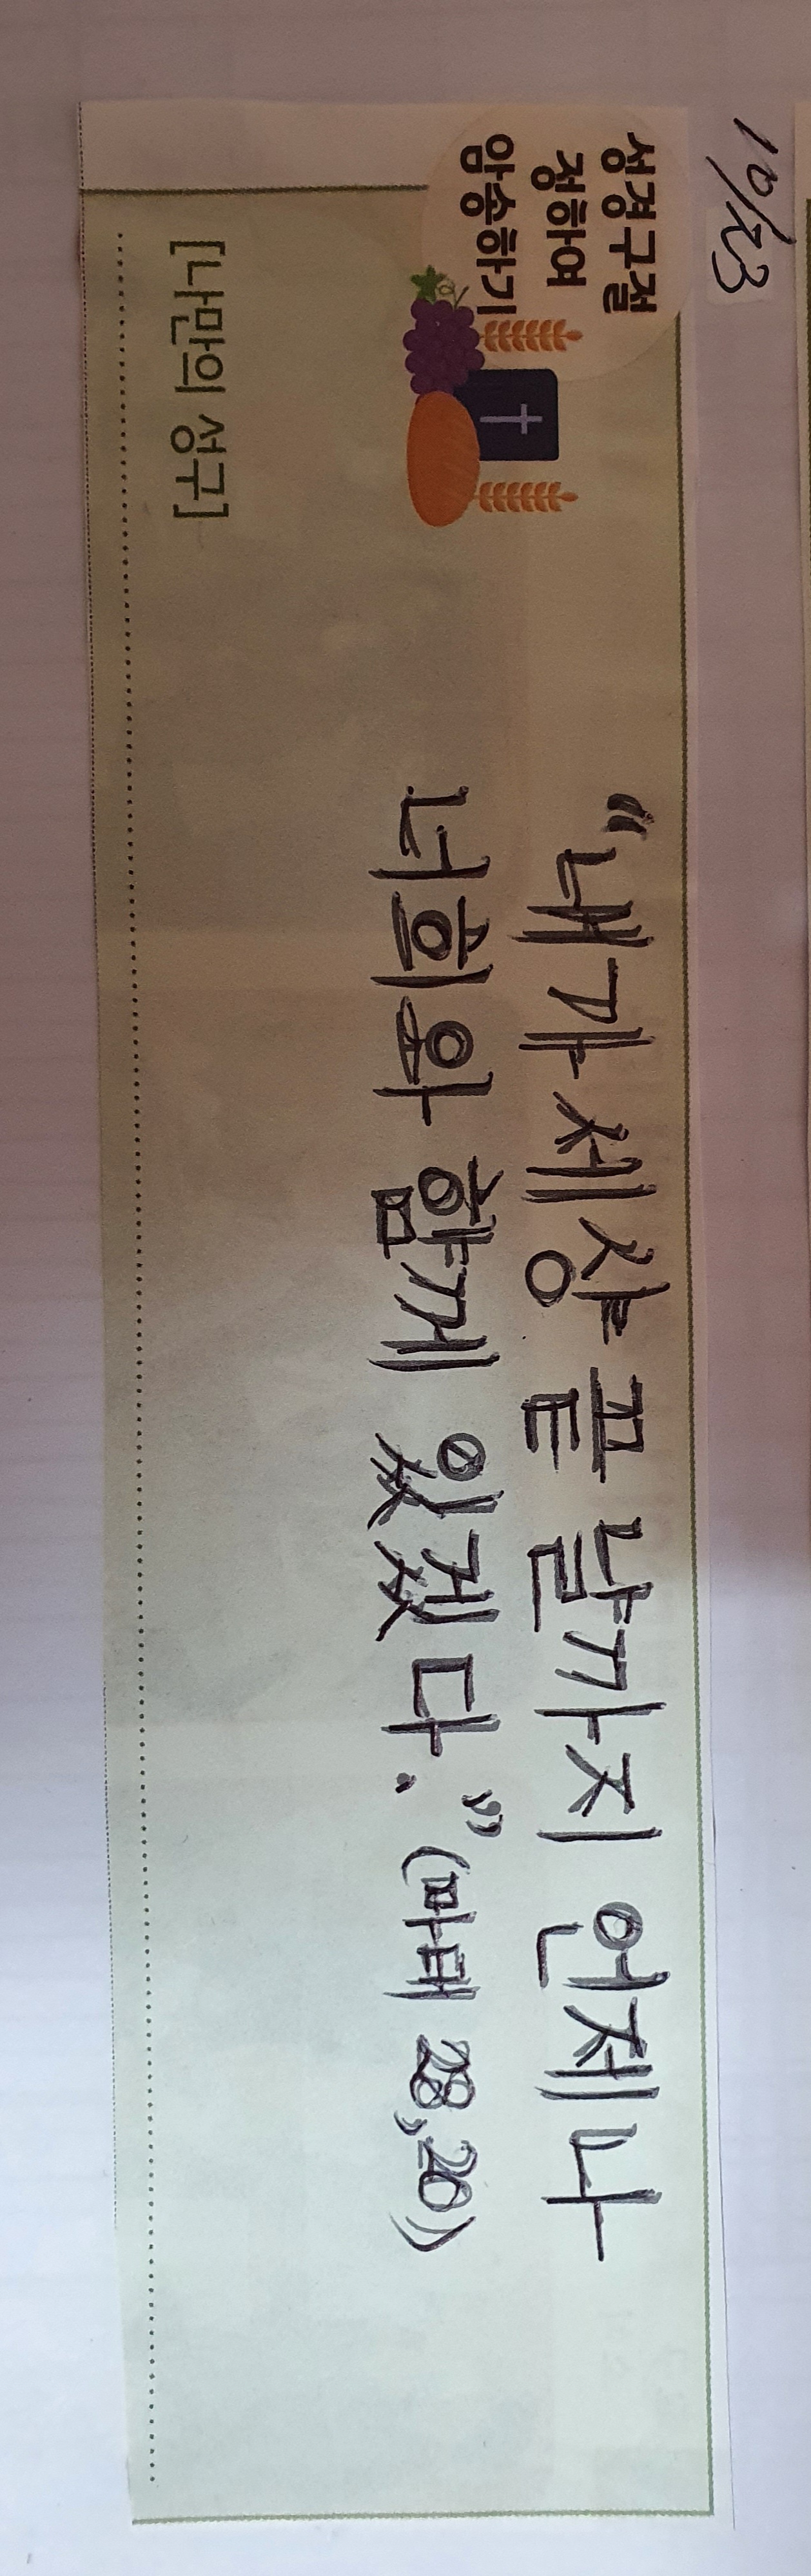 10/23
성경구절
정하여
암송하기
"내가 세상 끝 날까지 언제나
너희와 함께 있겠다." (마태 28,20)
[나만의 성구]